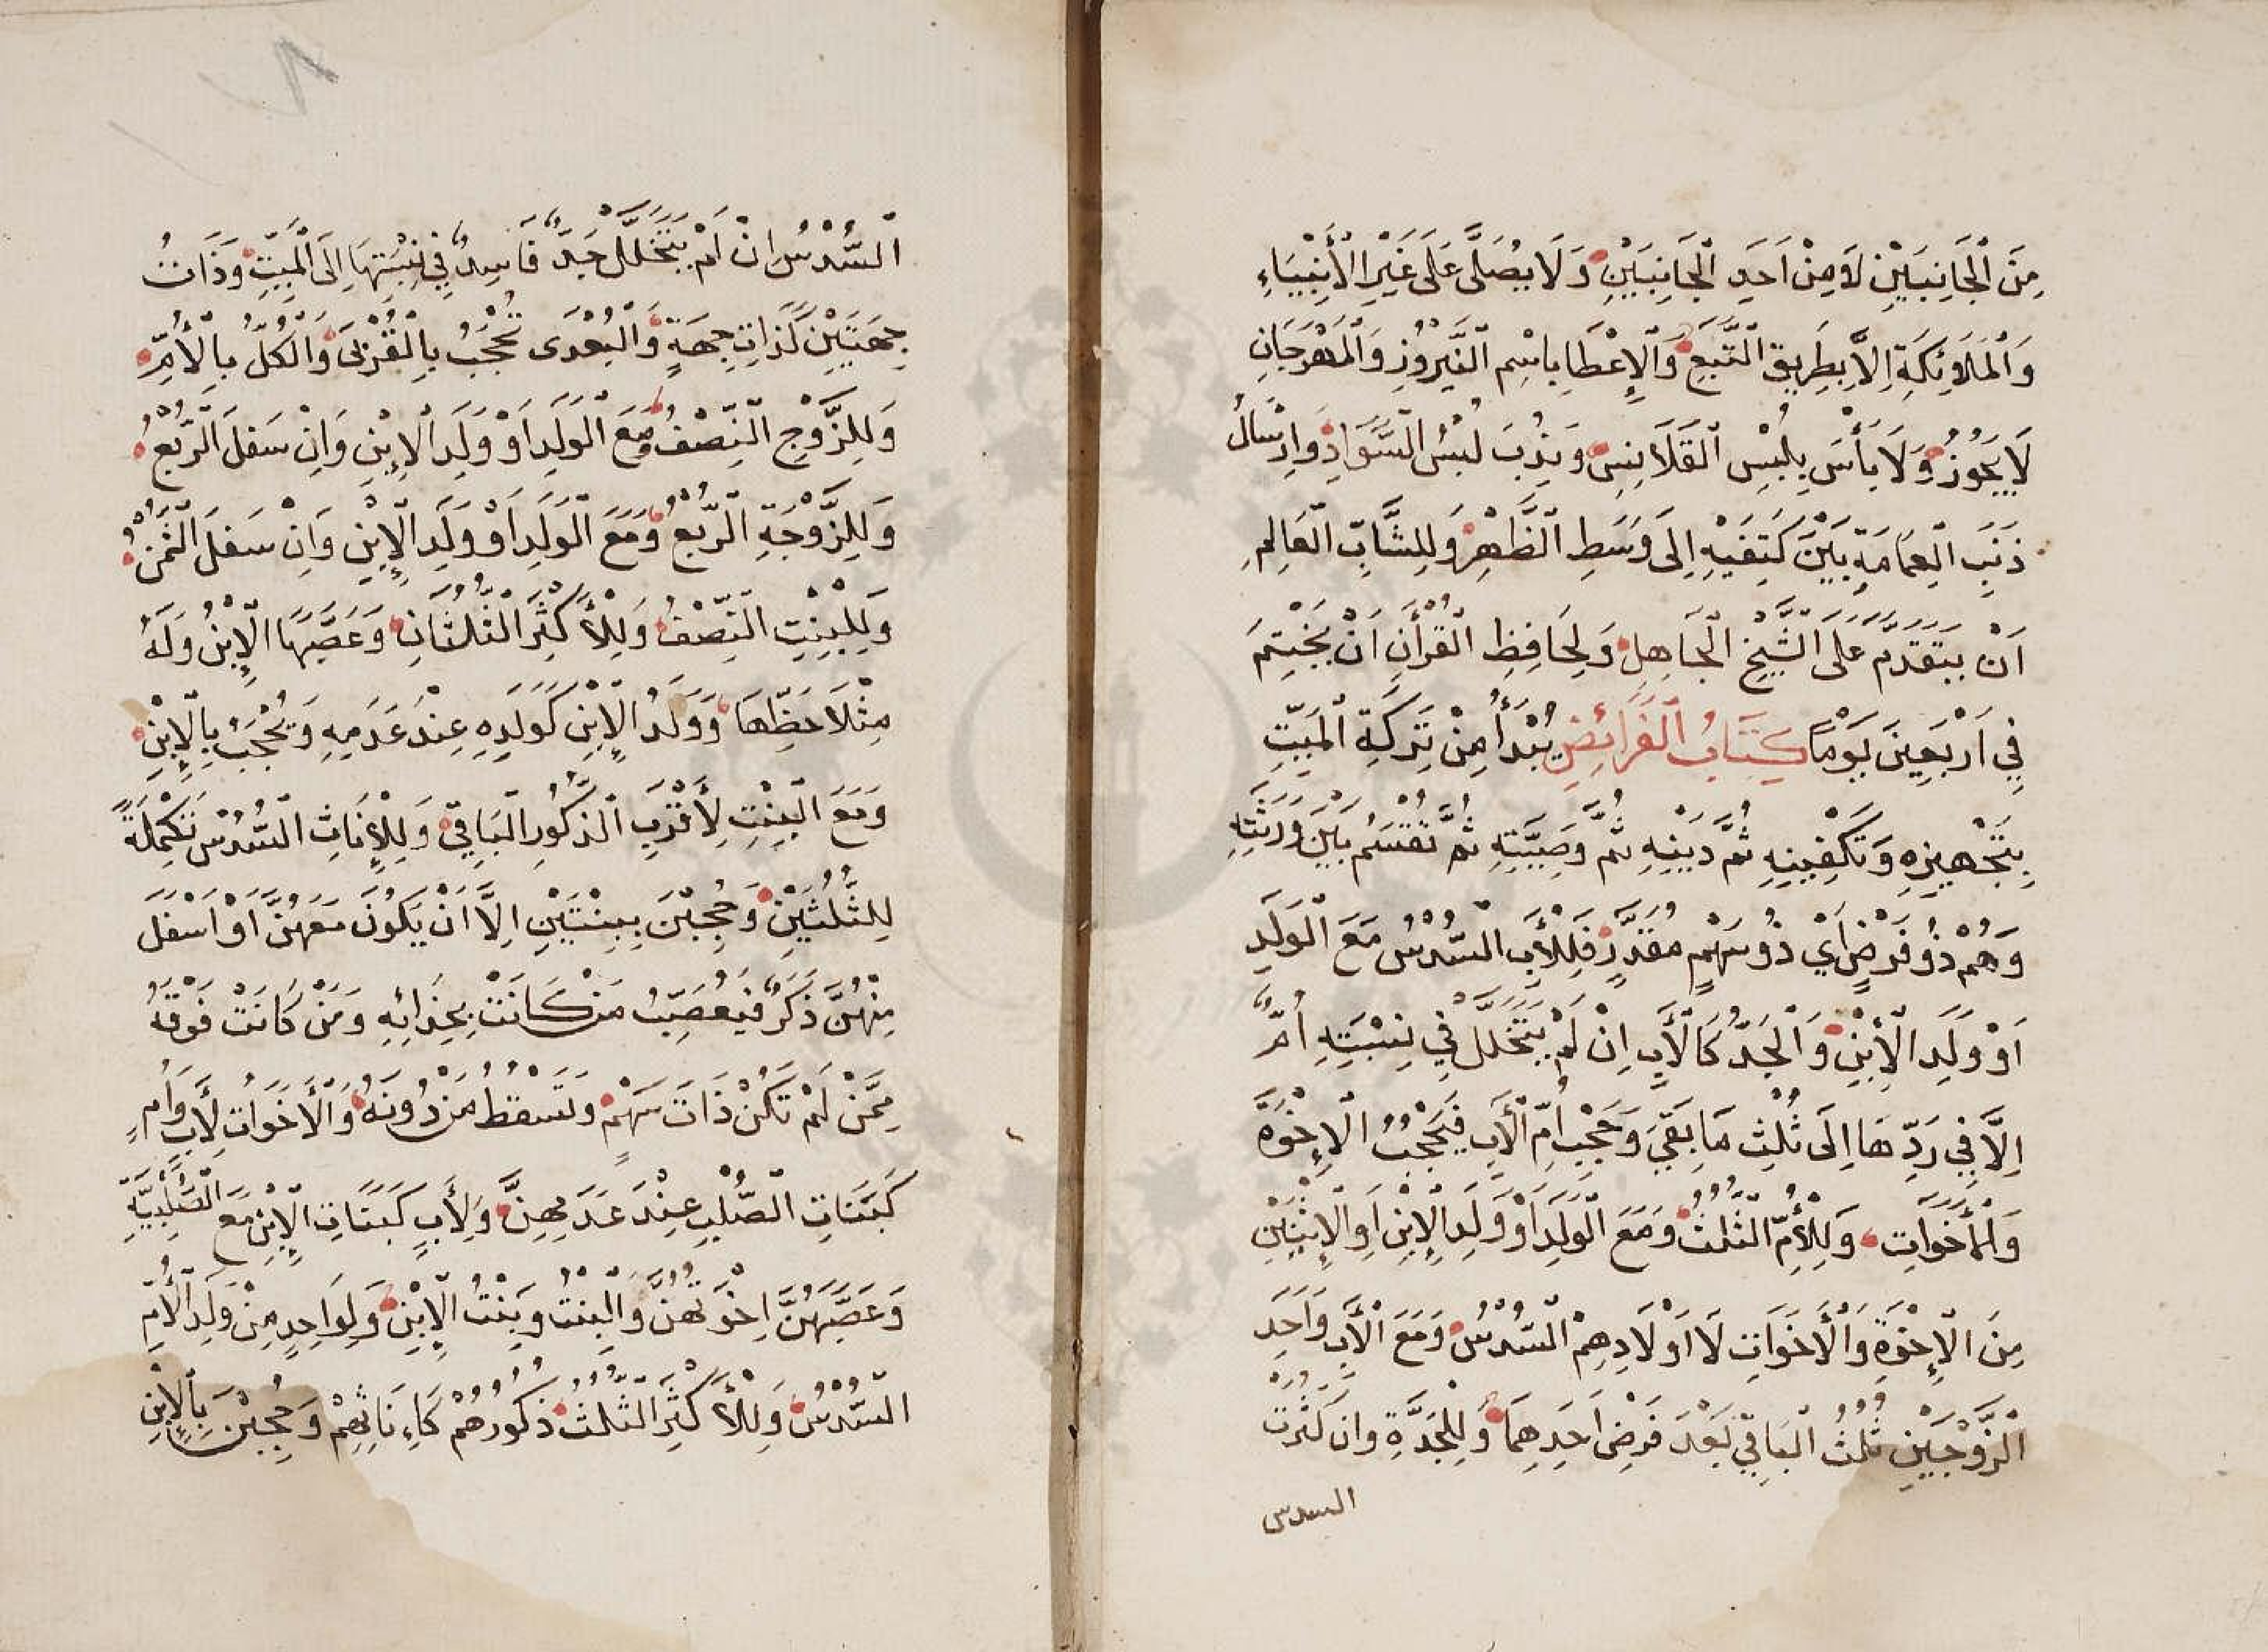 مِنَ الْجَانِبَيْنِ لَا مِنْ اَحَدِ الْجَانِبَيْنِ وَلَا يُصَلَّى عَلَى غَيْرِ الْأَنْبِيَاءِ
وَالْمَلَائِكَةِ اِلَّا بِطَرِيقِ التَّبَعِ وَالْإِعْطَا بِاسْمِ النَّيْرُوزِ وَالْمَهْرَجَانِ
لَا يَجُوزُ وَلَا بَأْسَ بِلُبْسِ الْقَلَانِسِ وَنُدِبَ لُبْسُ السَّوَادِ وَارْسَالُ
ذَنَبِ الْعِمَامَةِ بَيْنَ كَتِفَيْهِ اِلَى وَسَطِ الظَّهْرِ وَلِلشَّابِّ الْعَالِمِ
اَنْ يَتَقَدَّمَ عَلَى الشَّيْخِ الْجَاهِلِ وَلِحَافِظِ الْقُرْأَنِ اَنْ يَخْتِمَ
فِي اَرْبَعِينَ يَوْمًا كِتَابُ الْفَرَائِضِ يُبْدَأُ مِنْ تَرِكَةِ الْمَيِّتِ
بِتَجْهِيزِهِ وَتَكْفِينِهِ ثُمَّ دَيْنِهِ ثُمَّ وَصِيَّتِهِ ثُمَّ تُقْسَمُ بَيْنَ وَرَثَتِهِ
وَهُمْ ذُو فَرْضٍ اَيْ ذُو سَهْمٍ مُقَدَّرٍ فَلِلْأَبِ السُّدُسُ مَعَ الْوَلَدِ
اَوْ وَلَدِ الْإِبْنِ وَالْجَدُّ كَالْأَبِ اِنْ لَمْ يَتَخَلَّلْ فِي نِسْبَتِهِ اُمٌّ
اِلَّا فِي رَدِّهَا اِلَى ثُلُثِ مَا بَقِيَ وَحَجْبِ اُمِّ الْأَبِ فَيَحْجُبُ الْإِخْوَةَ
وَالْأَخَوَاتِ وَلِلْأُمِّ الثُّلُثُ وَمَعَ الْوَلَدِ اَوْ وَلَدِ الْإِبْنِ اَوِ الْإِثْنَيْنِ
مِنَ الْإِخْوَةِ وَالْأَخَوَاتِ لَا اَوْلَادِهِمْ السُّدُسُ وَمَعَ الْأَبِ وَاَحَدِ
الزَّوْجَيْنِ ثُلُثُ الْبَاقِي بَعْدَ فَرْضِ اَحَدِهِمَا وَلِلْجَدَّةِ وَانْ كَثُرَتْ
السدس
السُّدُسُ انْ لَمْ يَتَخَلَّلْ جَدٌّ فَاسِدٌ فِي نِسْبَتِهَا اِلَى الْمَيِّتِ وَذَاتُ
جِهَتَيْنِ كَذَاتِ جِهَةٍ وَالْبُعْدَى تُحْجَبُ بِالْقُرْبَى وَالْكُلُّ بِالْأُمِّ
وَلِلزَّوْجِ النِّصْفُ وَمَعَ الْوَلَدِ اَوْ وَلَدِ الْإِبْنِ وَاِنْ سَفَلَ الرُّبْعُ
وَلِلزَّوْجَةِ الرُّبْعُ وَمَعَ الْوَلَدِ اَوْ وَلَدِ الْإِبْنِ وَاِنْ سَفَلَ الثُّمْنُ
وَلِلْبِنْتِ النِّصْفُ وَلِلْأَكْثَرِ الثُّلُثَانِ وَعَصَّبَهَا الْإِبْنُ وَلَهُ
مِثْلَا حَظِّهَا وَوَلَدُ الْإِبْنِ كَوَلَدِهِ عِنْدَ عَدَمِهِ وَيُحْجَبُ بِالْإِبْنِ
وَمَعَ الْبِنْتِ لِأَقْرَبِ الذُّكُورِ الْبَاقِي وَلِلْإِنَاثِ السُّدُسُ تَكْمِلَةً
لِلثُّلُثَيْنِ وَحُجِبْنَ بِبِنْتَيْنِ اِلَّا اَنْ يَكُونَ مَعَهُنَّ اَوْ اَسْفَلَ
مِنْهُنَّ ذَكَرٌ فَيُعَصِّبُ مَنْ كَانَتْ بِحِذَائِهِ وَمَنْ كَانَتْ فَوْقَهُ
مِمَّنْ لَمْ تَكُنْ ذَاتَ سَهْمٍ وَتَسْقُطُ مَنْ دُونَهُ وَالْأَخَوَاتِ لِأَبٍ وَاُمٍ
كَبَنَاتِ الصُّلْبِ عِنْدَ عَدَمِهِنَّ وَلِأَبٍ كَبَنَاتِ الْإِبْنِ مَعَ الصُّلْبِيَّةِ
وَعَصَّبَهُنَّ اِخْوَتُهُنَّ وَالْبِنْتُ وَبِنْتُ الْإِبْنِ وَلِوَاحِدٍ مِنْ وَلَدِ الْأُمِّ
السُّدُسُ وَلِلْأَكْثَرِ الثُّلُثُ ذُكُورُهُمْ كَاِنَاثِهِمْ وَحُجِبْنَ بِالْإِبْنِ